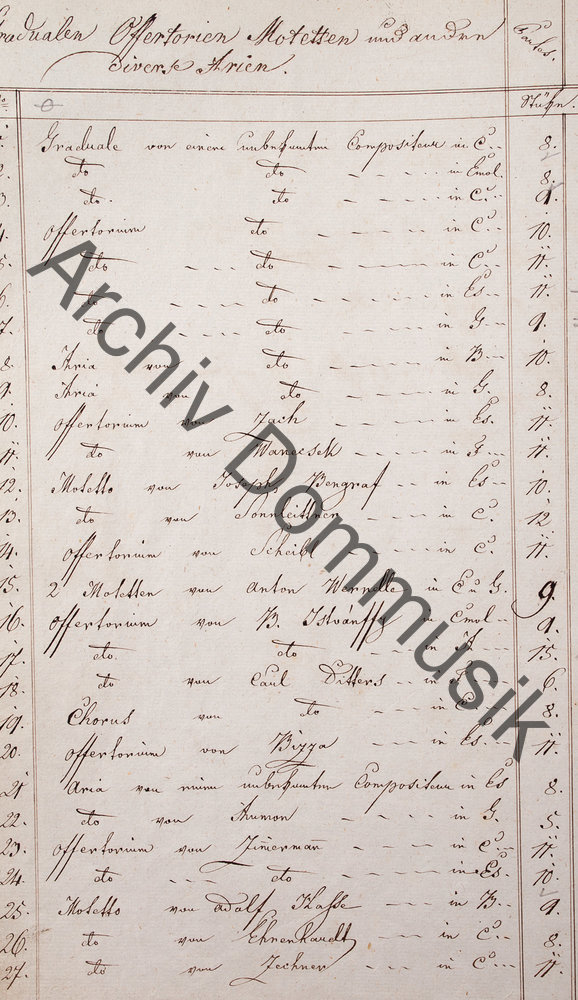 Gradualen Offertorien Motetten und andre
diverse Arien.
No Stükn.
1. Graduale von einem unbekannten Compositeur in C. 8.
2. do do in Emol. 8.
3. do. do in C. 9.
4. Offertorium do in C. 10.
5. do do in C. 11.
6. do do in Es 11.
7. do do in G 9.
8. Aria von do in B 10.
9. Aria von do in G. 8.
10. Offertorium von Zach in Es. 11.
11. do von Wanecsek in 11.
12. Motetto von Joseph Bengraf in Es 10.
13. do von Sonnleittner in C. 12
14. Offertorium von Scheibl in C. 11.
15. 2 Motetten von Anton Werndle in C u G. 9.
16. Offertorium von B. Istvánffy in Cmol 9.
17. do. do in A 15.
18. do von Carl Ditters in 6.
19. Chorus von do in C 8.
20. Offertorium von Bizza in Es. 11.
21 Aria von einem unbekannten Compositeur in Es 8.
22. do von Aumon in G. 5.
23. Offertorium von Zimermañ in C. 11.
24. do do in Es. 10.
25. Motetto von Adolf Hasse in B 9.
26. do von Ehrenhardt in C 8.
27. do von Zechner in C 11.
Archiv Dommusik